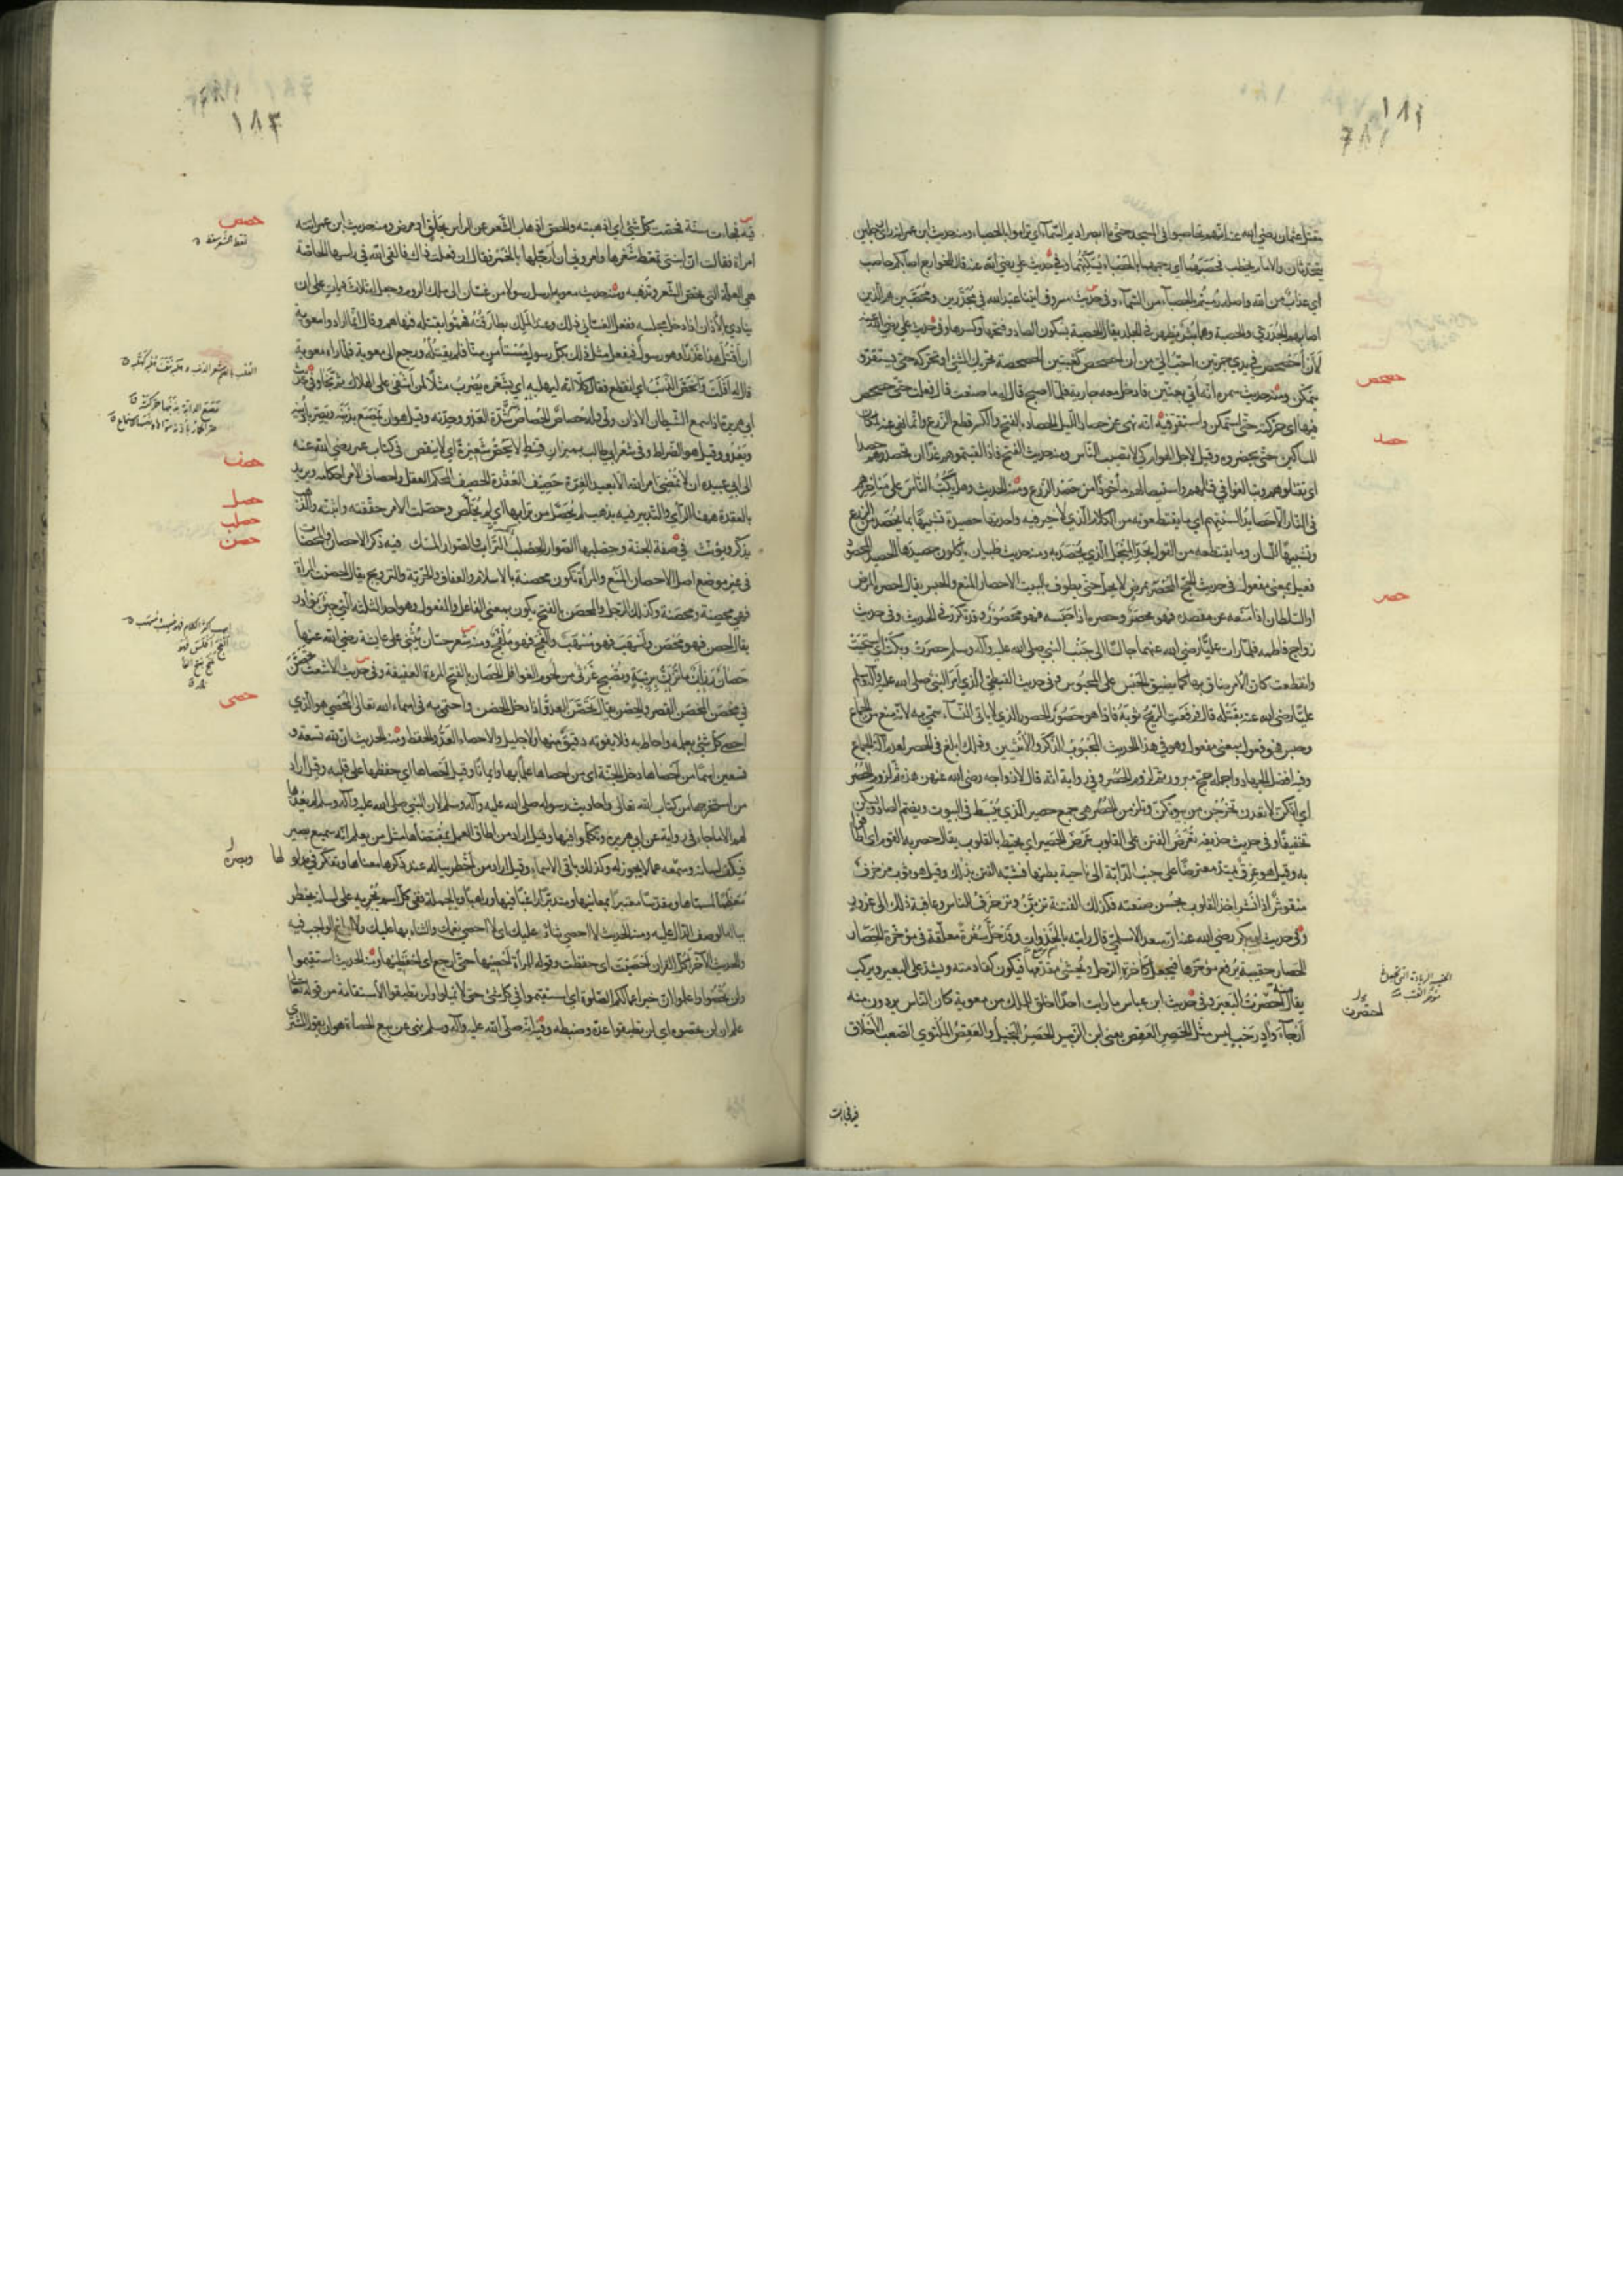 ١٨٦
بقتل عثمان رضي الله عنه انهم تحاصبوا في المسجد حتى ما ابصر اديم السماء اي تراموا بالحصباء ومنه حديث ابن عمر انه راى رجلين
يتحدثان والامام يخطب فحصبهما اي رجمهما بالحصباء يسكتهما وفي حديث علي رضي الله عنه قال للخوارج اصابكم حاصب
اي عذاب من الله واصله رميتم بالحصباء من السماء وفي حديث مسروق اتينا عبد الله في مجدرين ومحصبين هم الذين
اصابهم الجدري والحصبة وهما بثر يظهر في الجلد يقال الحصبة بسكون الصاد وفتحها وكسرها وفي حديث علي رضي الله عنه
لان احصحص في يدي جمرتين احب الي من ان احصحص كعبتين الحصحصة تحريك الشئ او تحركه حتى يستقر و
يتمكن ومنه حديث سمرة انه اتي بعنين فادخل معه جارية فلما اصبح قال له ما صنعت قال فعلت حتى حصحص
فيها اي حركته حتى استمكن واستقر فيه انه نهى عن حصاد الليل الحصاد بالفتح والكسر قطع الزرع وانما نهى عنه لمكان
المساكين حتى يحضروه وقيل لاجل الهوام كي لا تصيب الناس ومنه حديث الفتح فاذا لقيتموهم غدا ان تحصدوهم حصدا
اي تقتلوهم وتبالغوا في قتلهم واستيصالهم مأخوذ من حصد الزرع ومنه الحديث وهل يكب الناس على مناخرهم
في النار الا حصايد السنتهم اي ما يقتطعونه من الكلام الذي لا خير فيه واحدتها حصيدة تشبيها بما يحصد من الزرع
وتشبيها للسان وما يقتطعه من القول بحد المنجل الذي يحصد به ومنه حديث ظبيان ياكلون حصيدها الحصيد المحصود
فعيل بمعنى مفعول في حديث الحج المحصر بمرض لا يحل حتى يطوف بالبيت الاحصار المنع والحبس يقال احصره المرض
او السلطان اذا منعه عن مقصده فهو محصر وحصره اذا حبسه فهو محصور وقد تكرر في الحديث وفي حديث
زواج فاطمة فلما رات عليا رضي الله عنهما جالسا الى جنب النبي صلى الله عليه وآله وسلم حصرت وبكت اي استحيت
وانقطعت كان الامر ضاق بها كما يضيق الحبس على المحبوس وفي حديث القبطي الذي امر النبي صلى الله عليه وآله وسلم
عليا رضي الله عنه بقتله قال فرفعت الريح ثوبه فاذا هو حصور الحصور الذي لا ياتي النساء سمي به لانه منع من الجماع
وحبس فهو فعول بمعنى مفعول وهو في هذا الحديث المجبوب الذكر والانثيين وذلك ابلغ في الحصر لعدم آلة الجماع
وفيه افضل الجهاد واجمله حج مبرور ثم لزوم الحصر وفي رواية انه قال لازواجه رضي الله عنهن هذه ثم لزوم الحصر
اي انكن لا تعدن تخرجن من بيوتكن وتلزمن الحصر هي جمع حصير الذي يبسط في البيوت وبضم الصاد وتسكن
تخفيفا وفي حديث حذيفة تعرض الفتن على القلوب عرض الحصير اي تحيط بالقلوب يقال حصر به القوم اي اطافوا
به وقيل هو عرق يمتد معترضا على جنب الدابة الى ناحية بطنها فشبه الفتن بذلك وقيل هو ثوب مزخرف
منقوش اذا نشر اخذ القلوب بحسن صنعته فكذلك الفتنة تزين وتزخرف للناس وعاقبة ذلك الى غرور
وفي حديث ابي بكر رضي الله عنه ان سعدا الاسلمي قال رايته بالخذوات وقد حل سفرة معلقة في مؤخرة الحصار
الحصار حقيبة يرفع مؤخرها فيجعل كآخرة الرحل ويحشى مقدمها فيكون كقادمته ويشد على البعير ويركب
يقال احتصرت البعير وفي حديث ابن عباس ما رايت احدا اخلق للملك من معوية كان الناس يردون منه
ارجاء واد رحب ليس مثل الحصر العقص يعني ابن الزبير الحصر البخيل والعقص الملتوي الصعب الاخلاق
حصحص
حصد
حصر
احتصرت
١٨٧
فيه فجاءت سنة فحصت كل شئ اي اذهبته والحص اذهاب الشعر عن الراس بحلق او مرض ومنه حديث ابن عمر اتته
امراة فقالت ان ابنتي تمعط شعرها وامروني ان ارجلها بالخمر فقال ان فعلت ذاك فالقى الله في راسها الحاصة
هي العلة التي تحص الشعر وتذهبه ومنه حديث معوية ارسل رسولا من غسان الى ملك الروم وجعل له ثلاث ديات على ان
ينادي بالاذان اذا دخل مجلسه ففعل الغساني ذلك وعند الملك بطارقته فهموا بقتله فنهاهم وقال انما اراد معوية
ان اقتل هذا غدرا وهو رسول فيفعل مثل ذلك بكل رسول مستأمن منا فلم يقتله ورجع الى معوية فلما راه معوية
قال له افلت وانحص الذنب اي انقطع فقال كلا انه لبهلبه اي بشعره يضرب مثلا لمن اشفى على الهلاك ثم نجا وفي حديث
ابي هريرة اذا سمع الشيطان الاذان ولى وله حصاص الحصاص شدة العدو وحدته وقيل هو ان يمصع بذنبه ويصر باذنيه
ويعدو وقيل هو الضراط وفي شعر ابي طالب بميزان قسط لا يحص شعيرة اي لا ينقص في كتاب عمر رضي الله عنه
الى ابي عبيدة ان لا يمضي امر الله الا بعيد الغرة حصيف العقدة الحصيف المحكم العقل واحصاف الامر احكامه ويريد
بالعقدة ههنا الراي والتدبير فيه بذهب لم تحصل من ترابها اي لم تخلص وحصلت الامر حققته واثبته والذهب
يذكر ويؤنث في صفة الجنة وحصلبها الصوار الحصلب التراب والصوار المسك فيه ذكر الاحصان والمحصنات
في غير موضع اصل الاحصان المنع والمراة تكون محصنة بالاسلام والعفاف والحرية والتزويج يقال احصنت المراة
فهي محصنة ومحصنة وكذلك الرجل والمحصن بالفتح يكون بمعنى الفاعل والمفعول وهو احد الثلثة التي جئن نوادر
يقال احصن فهو محصن واسهب فهو مسهب والفج فهو ملفج ومنه شعر حسان يثني على عائشة رضي الله عنها
حصان رزان ما تزن بريبة وتصبح غرثى من لحوم الغوافل الحصان بالفتح المراة العفيفة وفي حديث الاشعث تحصن
في محصن المحصن القصر والحصن يقال تحصن العدو اذا دخل الحصن واحتمى به في اسماء الله تعالى المحصي هو الذي
احصى كل شئ بعلمه واحاط به فلا يفوته دقيق منها ولا جليل والاحصاء العد والحفظ ومنه الحديث ان لله تسعة و
تسعين اسما من احصاها دخل الجنة اي من احصاها علما بها وايمانا وقيل احصاها اي حفظها على قلبه وقيل اراد
من استخرجها من كتاب الله تعالى واحاديث رسوله صلى الله عليه وآله وسلم لان النبي صلى الله عليه وآله وسلم لم يعدها
لهم الا ما جاء في رواية عن ابي هريرة وتكلموا فيها وقيل اراد من اطاق العمل بمقتضاها مثل من يعلم انه سميع بصير
فيكف لسانه وسمعه عما لا يجوز له وكذلك باقي الاسماء وقيل اراد من اخطر بباله عند ذكرها معناها وتفكر في مدلولها
معظما لمسماها ومقدسا معتبرا بمعانيها ومتدبرا راغبا فيها وراهبا وبالجملة ففي كل اسم يجريه على لسانه يخطر
بباله الوصف الدال عليه ومنه الحديث لا احصي ثناء عليك اي لا احصي نعمك والثناء بها عليك ولا ابلغ الواجب فيه
والحديث الآخر اكل القران احصيت اي حفظت وقوله للمراة احصيها حتى ارجع اي احفظيها ومنه الحديث استقيموا
ولن تحصوا واعلموا ان خير اعمالكم الصلوة اي استقيموا في كل شئ حتى لا تميلوا ولن تطيقوا الاستقامة من قوله تعالى
علم ان لن تحصوه اي لن تطيقوا عده وضبطه وفيه انه صلى الله عليه وآله وسلم نهى عن بيع الحصاة هو ان يقول المشتري
حصص
حصف
حصل
حصلب
حصن
حصى
وبصره